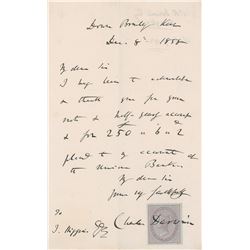 Down Bromley Kent
Dec. 8th 1858
My dear Sir
I beg leave to acknowledge
& thank you for your
note & half-yearly account
& for 250 " 6 " 2
placed to my account at
the Union Bank.
My dear Sir
Yours very faithfully
Charles Darwin
To
J. Higgins Esq